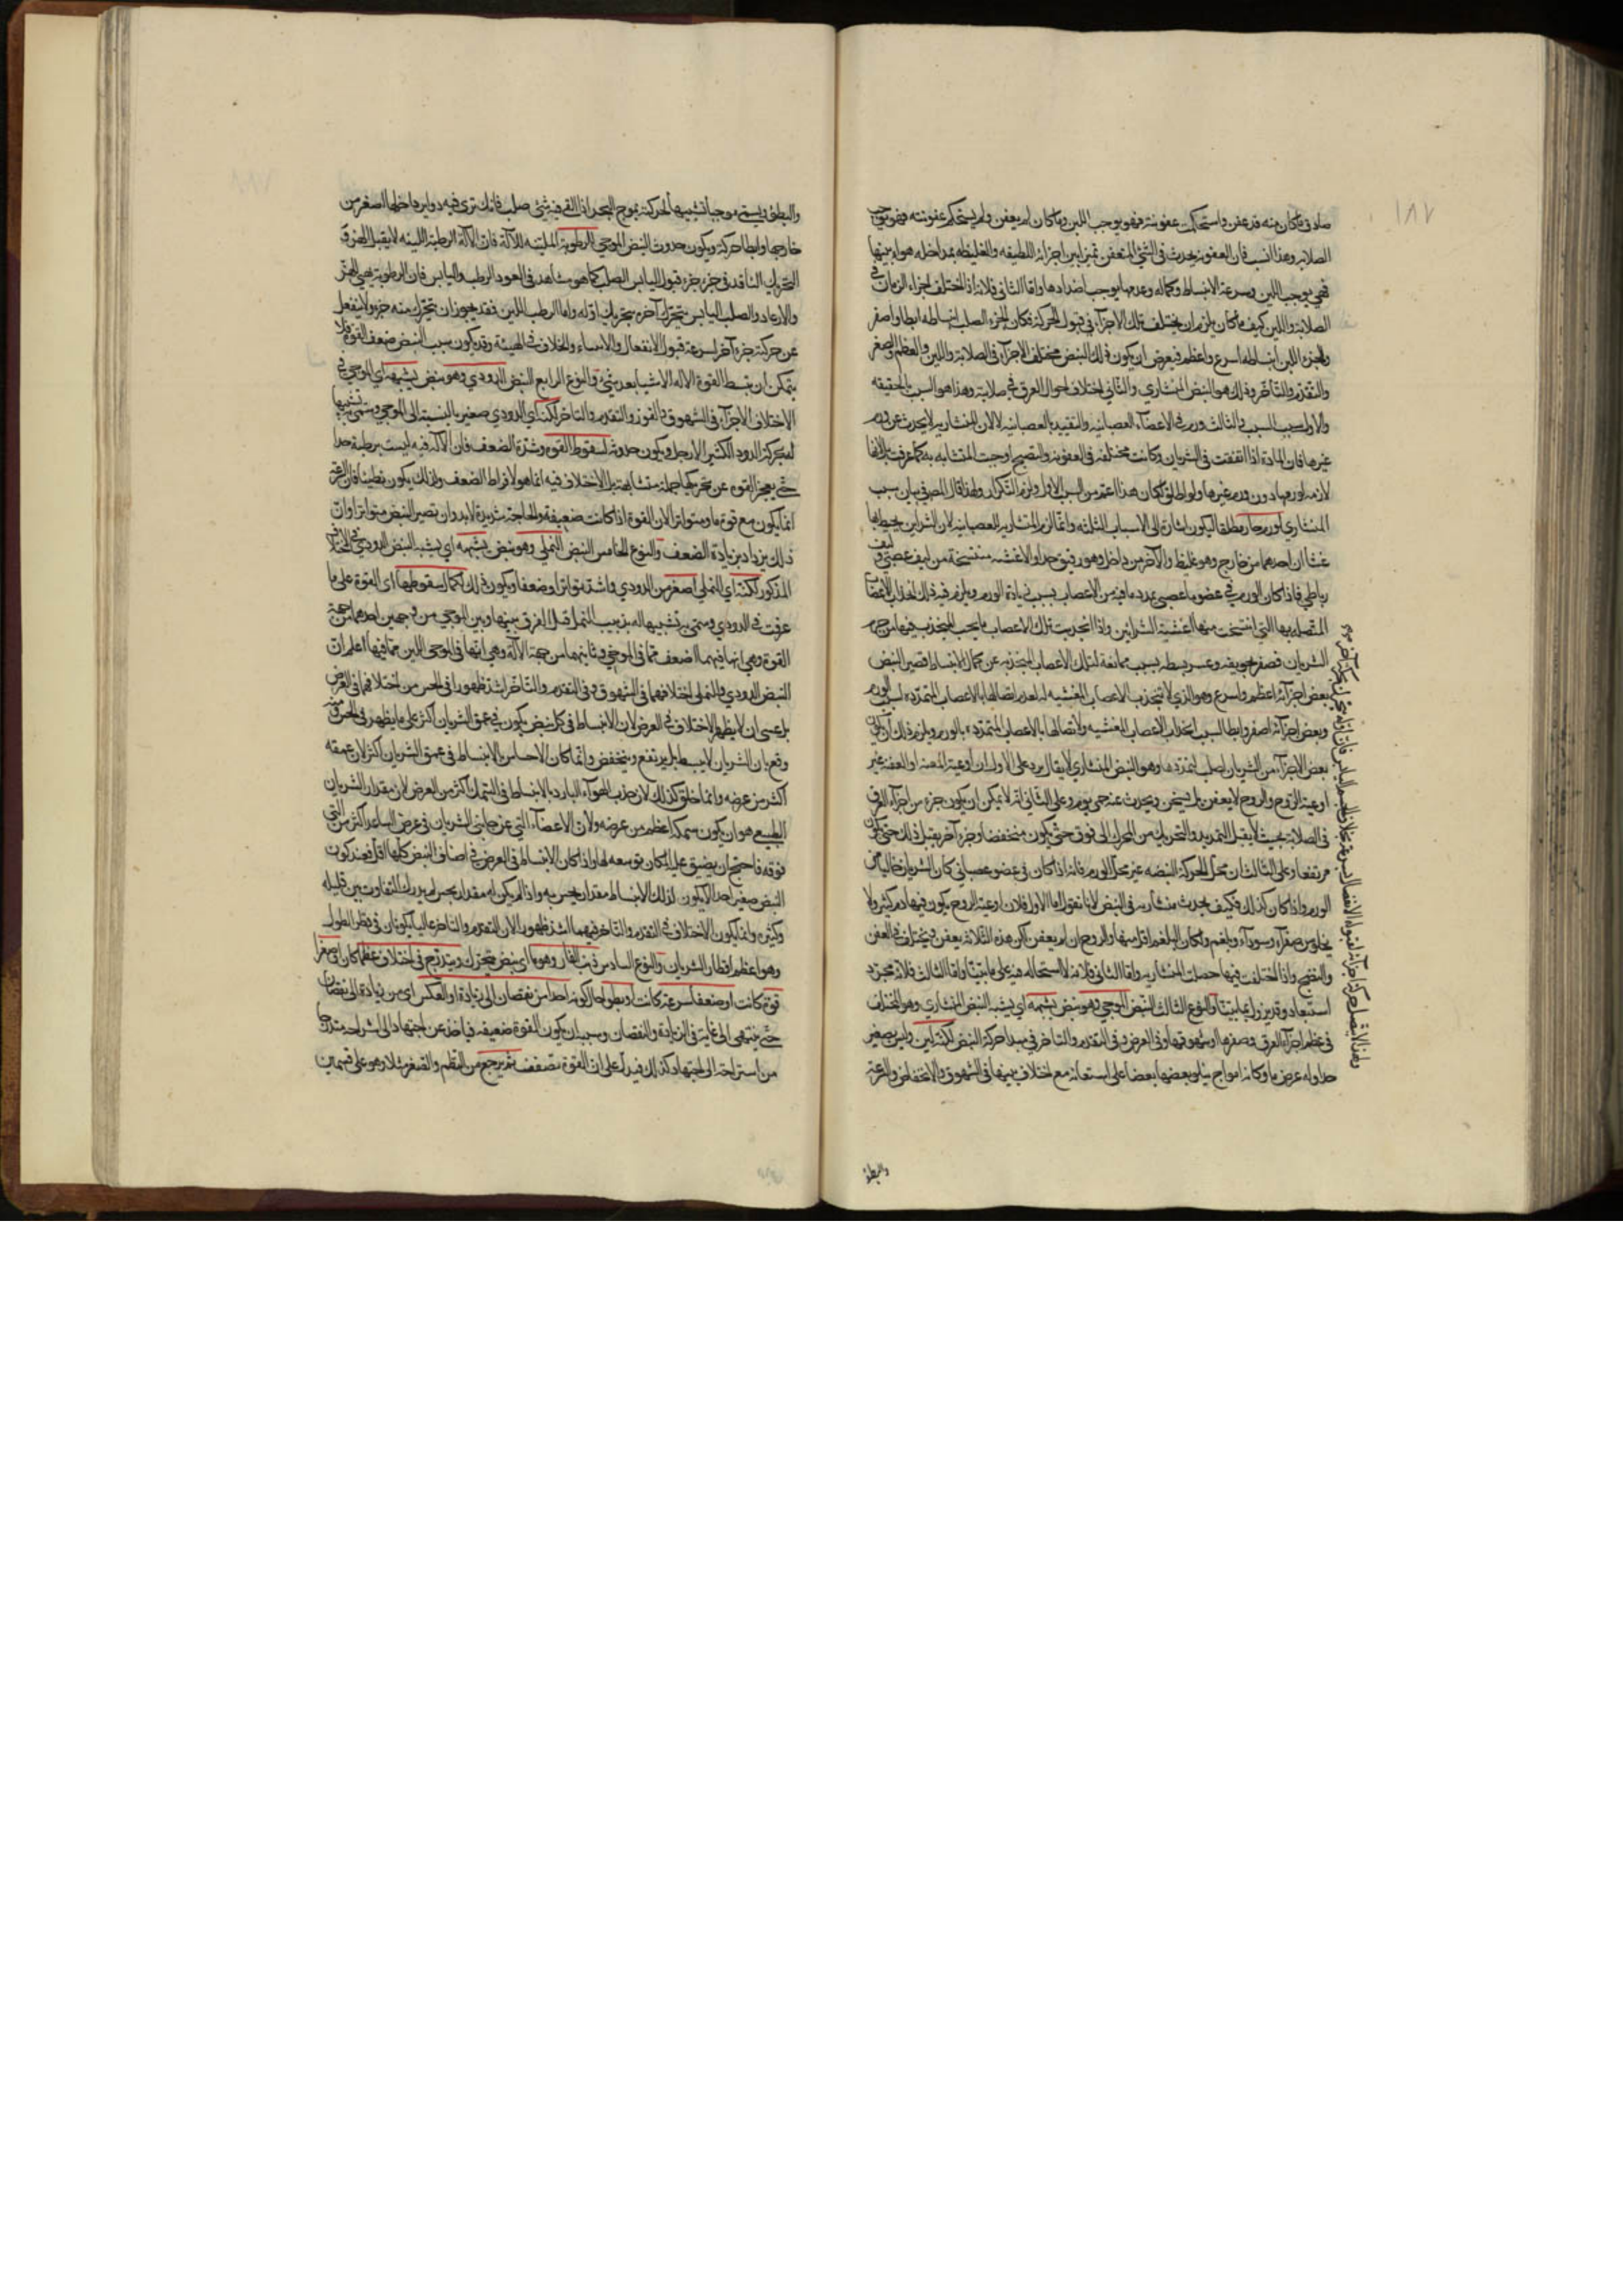 ١٨٧
صلاته فما كان منه قد عفن واستحكمت عفونته فهو يوجب اللين وما كان لم يعفن ولم يستحكم عفونته فهو يوجب
الصلابة وهذا انسب فان العفونة يحدث في الشئ المتعفن تميزا بين اجزائه اللطيفه والغليظه بمداخله هواء بينها
فهي يوجب اللين وسرعة الانبساط وكماله وعدمها يوجب اضدادها واما الثاني فلانه اذا اختلف اجزاء الشريان في
الصلابة واللين كيف ما كان يلزم ان يختلف تلك الاجزاء في قبول الحركة فكان الجزء الصلب انبساطه ابطا واصغر
والجزء اللين انبساطه اسرع واعظم فيعرض ان يكون ذلك النبض مختلف الاجزاء في الصلابة واللين والعظم والصغر
والتقدم والتأخر وذلك هو النبض المنشاري والثاني اختلاف احوال العرق في صلابته وهذا هو السبب بالحقيقه
والاول سبب السبب والثالث ورم في الاعضاء العصبانيه والتقييد بالعصبانيه لا لان المنشاريه لا يحدث عن ورم
غيرها فان المادة اذا اتفقت في الشريان وكانت مختلفه في العفونة والنضج اوجبت المتشابه به كما عرفت بل لانها
لازمه لورمها دون ورم غيرها ولو اطلق لكان هذا اعم من السبب الاول ولزم التكرار ولهذا قال المصنف بيان سبب
المنشاري او ورم حار مطلقا ليكون اشارة الى الاسباب الثلثه وانما لزم المنشاريه للعصبانيه لان الشرايين يحيط بها
غشاان احدهما من خارج وهو غليظ والآخر من داخل وهو رقيق جدا والاغشيه منتسجة من ليف عصبي وليف
رباطي فاذا كان الورم في عضو عصبي تمدد ما فيه من الاعصاب بسبب زيادة الورم ويلزم فيه ذلك انجذاب الاعصاب
المتصله بها التي انتسجت منها اغشية الشرايين واذا انجذبت تلك الاعصاب ما يجب المنجذب فيها من جرم
الشريان فصغر تجويفه وعسر بسطه بسبب ممانعة تلك الاعصاب المنجذبه عن كمال الانبساط فصير النبض
بعض اجزائه اعظم واسرع وهو الذي لا تنجذب الاعصاب المغشيه له لعدم اتصالها بالاعصاب المتمددة بسبب الورم
وبعض اجزائه اصغر وابطا لسبب انجذاب الاعصاب المغشيه ولاتصالها بالاعصاب المتمددة بالورم ويلزم ذلك ان يكون
بعض الاجزاء من الشريان اصلب لتمددها وهو النبض المنشاري لا يقال يرد على الاول ان اوعية المعنه او العفنه غير
اوعية الروح والروح لا يعفن بل يسخن ويحدث عنه حمى يوم وعلى الثاني انه لا يمكن ان يكون جزء من اجزاء العرق
في الصلابة بحيث لا يقبل التمديد والتحريك من المحرك الى فوق حتى يكون منخفضا وجزء آخر يقبل ذلك حتى يكون
مرتفعا وعلى الثالث ان محل الحركة النبضيه غير محل الورم فانه اذا كان في عضو عصباني كان الشريان خاليا عن
الورم واذا كان كذلك فكيف يحدث منشاريه في النبض لانا نقول اما الاول فلان اوعية الروح يكون فيها دم كثير ولا
يخلو من صفراء وسوداء وبلغم وان كان البلغم اقل منها والروح ان لم يعفن لكن هذه الثلاثة يعفن ويختلف في العفن
والنضج واذا اختلف فيها حصلت المنشاريه واما الثاني فلانه لا استحاله فيه على ما بينا واما الثالث فلانه مجرد
استبعاد وقد بين وانما بينا والنوع الثالث النبض الموجي وهو نبض يشبهه اي يشبه النبض المنشاري وهو المختلف
في عظم اجزاء العرق وصغرها او شهوقها وفي العرض وفي التقدم والتاخر في مبدا حركة النبض لكنه لين وليس بصغير
جدا وله عرض ما وكانه امواج يتلو بعضها بعضا على استقامة مع اختلاف بينها في الشهوق والانخفاض والسرعة
والبطؤ
والبطؤ ويسمى موجيا تشبيها لحركته بموج البحر اذا القي فيه شئ صلب فانك ترى فيه دواير داخلها اصغر من
خارجها وابطا حركة ويكون حدوث النبض الموجي للرطوبة المليته للآلة فان الآلة الرطبة اللينه لا يقبل الهز و
التحريك النافذ في جزء جزء قبول اليابس الصلب كما هو مشاهد في العود الرطب واليابس فان الرطوبة ينهي الهز
والارعاد والصلب اليابس يتحرك آخره بتحريك اوله واما الرطب اللين فقد يجوز ان يتحرك منه جزء ولا ينفعل
عن حركته جزء آخر لسرعة قبول الانفعال والانثناء والخلاف في الهيئة وقد يكون سبب النبض ضعف القوة فلا
يتمكن ان يبسط القوة الآله الا شيئا بعد شئ والنوع الرابع النبض الدودي وهو نبض يشبهه اي الموجي في
الاختلاف الاجزاء في الشهوق والغور والتقدم والتاخر لكنه اي الدودي صغير بالنسبة الى الموجي وسمي به تشبيها
له بحركة الدود الكثير الارجل ويكون حدوثه لسقوط القوه وشدة الضعف فان الآله فيه ليست برطبة جدا
حتى يعجز القوه عن تحريكها جملة متشابهة بل الاختلاف فيه انما هو لافراط الضعف ولذلك يكون بطيئا فان السرعة
انما يكون مع قوة ما ومتواترا لان القوة اذا كانت ضعيفة والحاجة شديدة لا بد وان يصير النبض متواترا وان
ذلك يزداد بزيادة الضعف والنوع الخامس النبض النملي وهو نبض يشبهه اي يشبه النبض الدودي في الاختلاف
المذكور لكنه اي النملي اصغر من الدودي واشد تواترا وضعفا ويكون ذلك لكمال سقوطها اي القوة على ما
عرفت في الدودي وسمي به تشبيها له بدبيب النمل قيل الفرق بينها وبين الموجي من وجهين احدهما من جهة
القوة وهي انها فيهما اضعف مما في الموجي وثانيهما من جهة الآلة وهي انها في الموجي الين مما فيها اعلم ان
النبض الدودي والنملي اختلافهما في الشهوق وفي التقدم والتاخر اشد ظهورا في الحس من اختلافهما في العرض
بل عسى ان لا يظهر الاختلاف في العرض لان الانبساط في كل نبض يكون في عمق الشريان اكثر على ما يظهر في الحس منه
وقع بان الشريان لا يبسط بل يرتفع وينخفض وانما كان الاحساس بالانبساط في عمق الشريان اكثر لان عمقه
اكثر من عرضه وانما خلق كذلك لان جذب الهواء البارد بالانبساط في السمك اكثر من العرض لان مقدار الشريان
الطبيعي هو ان يكون سمكه اعظم من عرضه ولان الاعضاء التي عن جانبي الشريان في عرض الساعد اكثر من التي
فوقه فاحتيج ان يضيق عليه المكان توسعه لها واذا كان الانبساط في العرض في اصناف النبض كلها اقل فعند كون
النبض صغيرا جدا لا يكون لذلك الانبساط مقدار يحس به واذا لم يكن له مقدار يحس لم يدرك التفاوت بين قليله
وكثيره وانما يكون الاختلاف في التقدم والتاخر فيهما اشد ظهورا لان التقدم والتاخر غالبا يكونان في قطر الطول
وهو اعظم اقطار الشريان والنوع السادس ذنب الفار وهو ما اي نبض يتحرك ويتدرج في اختلاف عظما كان او صغرا
قوة كانت او ضعفا سرعة كانت او بطوا حال كونه آخذا من نقصان الى زيادة او بالعكس اي من زيادة الى نقصان
حتى ينتهي الى غاية في الزيادة والنقصان وسببه ان يكون القوة ضعيفه فياخذ عن اجتهاد الى استراحه متدرجا
من استراحة الى اجتهاد كذلك فيدل على ان القوة تضعف ثم يرجع من العظم والصغر مثلا وهو على قسمين